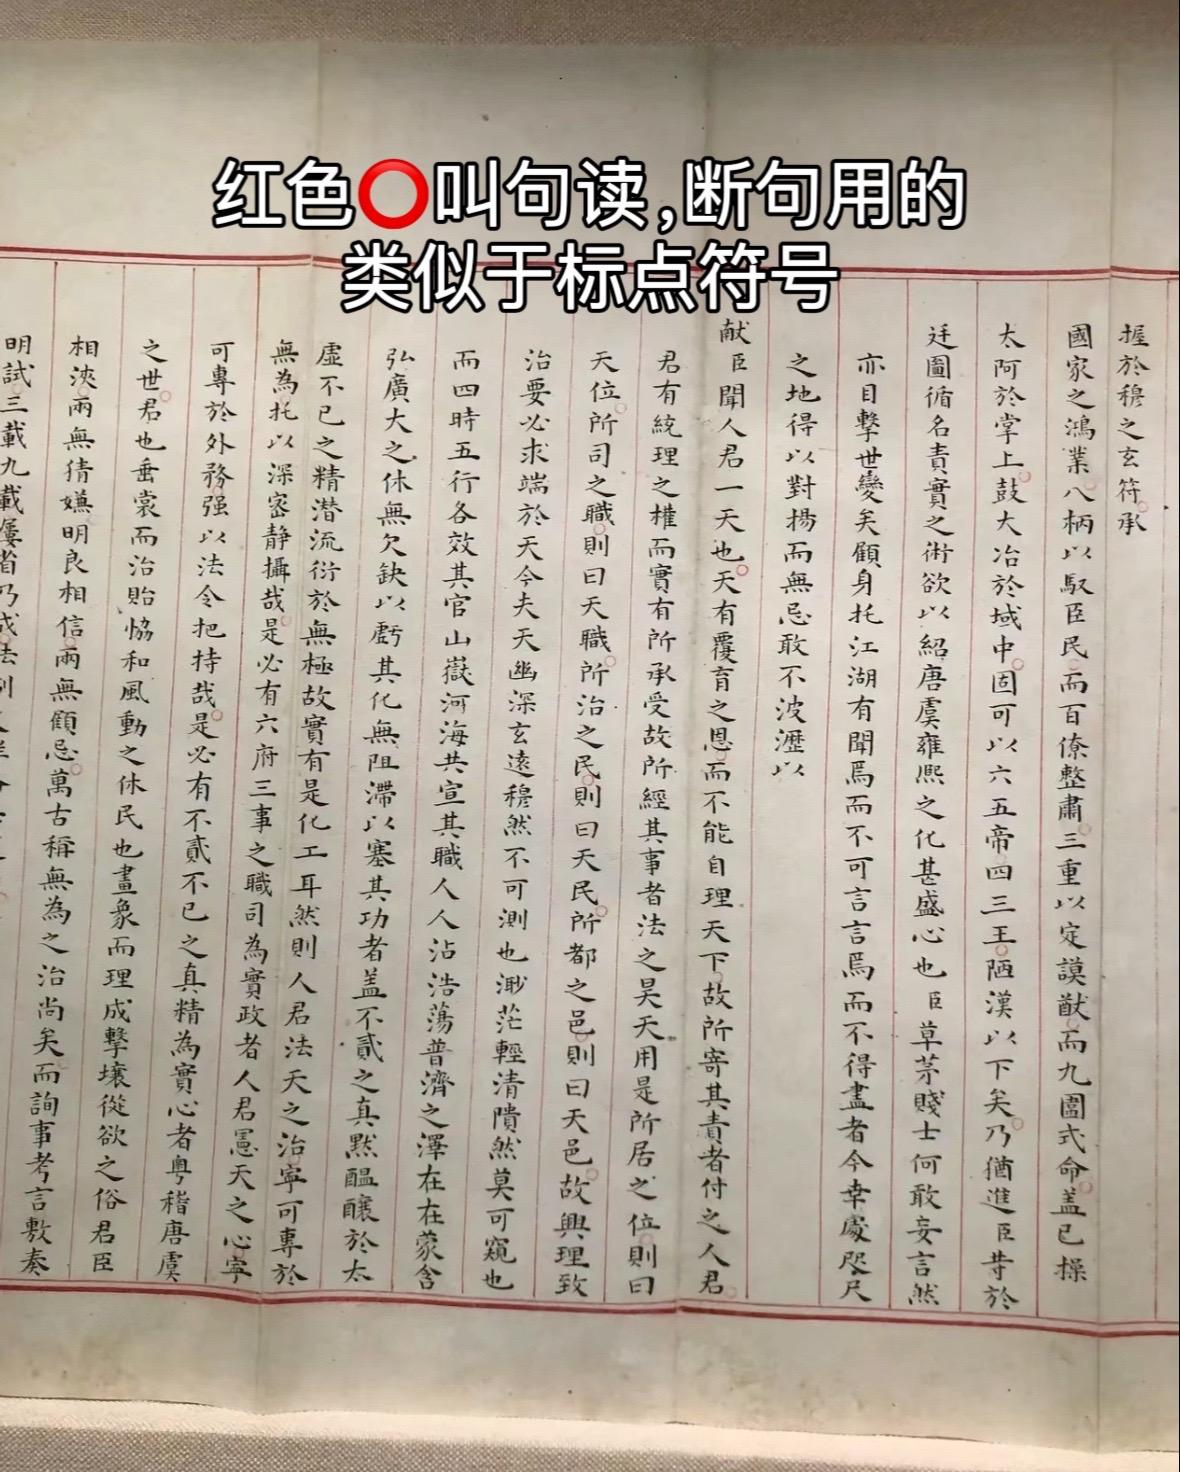 红色⭕叫句读,断句用的
类似于标点符号
握於穆之玄符承
國家之鴻業八柄以馭臣民而百僚整肅三重以定謨猷而九圍式命盖已操
太阿於掌上鼓大冶於域中固可以六五帝四三王陋漢以下矣乃猶進臣等於
廷圖循名責實之術欲以紹唐虞雍熙之化甚盛心也臣草茅賤士何敢妄言然
亦目擊世變矣顧身托江湖有聞焉而不可言言焉而不得盡者今幸處咫尺
之地得以對揚而無忌敢不波瀝以
献臣聞人君一天也天有覆育之恩而不能自理天下故所寄其責者付之人君
君有統理之權而實有所承受故所經其事者法之昊天用是所居之位則曰
天位所司之職則曰天職所治之民則曰天民所都之邑則曰天邑故興理致
治要必求端於天今夫天幽深玄遠穆然不可測也渺茫輕清隤然莫可窺也
而四時五行各效其官山嶽河海共宣其職人人沾浩蕩普濟之澤在在蒙含
弘廣大之休無欠缺以虧其化無阻滯以塞其功者盖不貳之真默醞釀於太
虛不已之精潜流衍於無極故實有是化工耳然則人君法天之治寧可專於
無為托以深宻静攝哉是必有六府三事之職司為實政者人君憲天之心寧
可專於外務强以法令把持哉是必有不貳不已之真精為實心者粤稽唐虞
之世君也垂裳而治貽恊和風動之休民也畫象而理成擊壤從欲之俗君臣
相浹兩無猜嫌明良相信兩無顧忌萬古稱無為之治尚矣而詢事考言敷奏
明試三載九載屢省乃成法